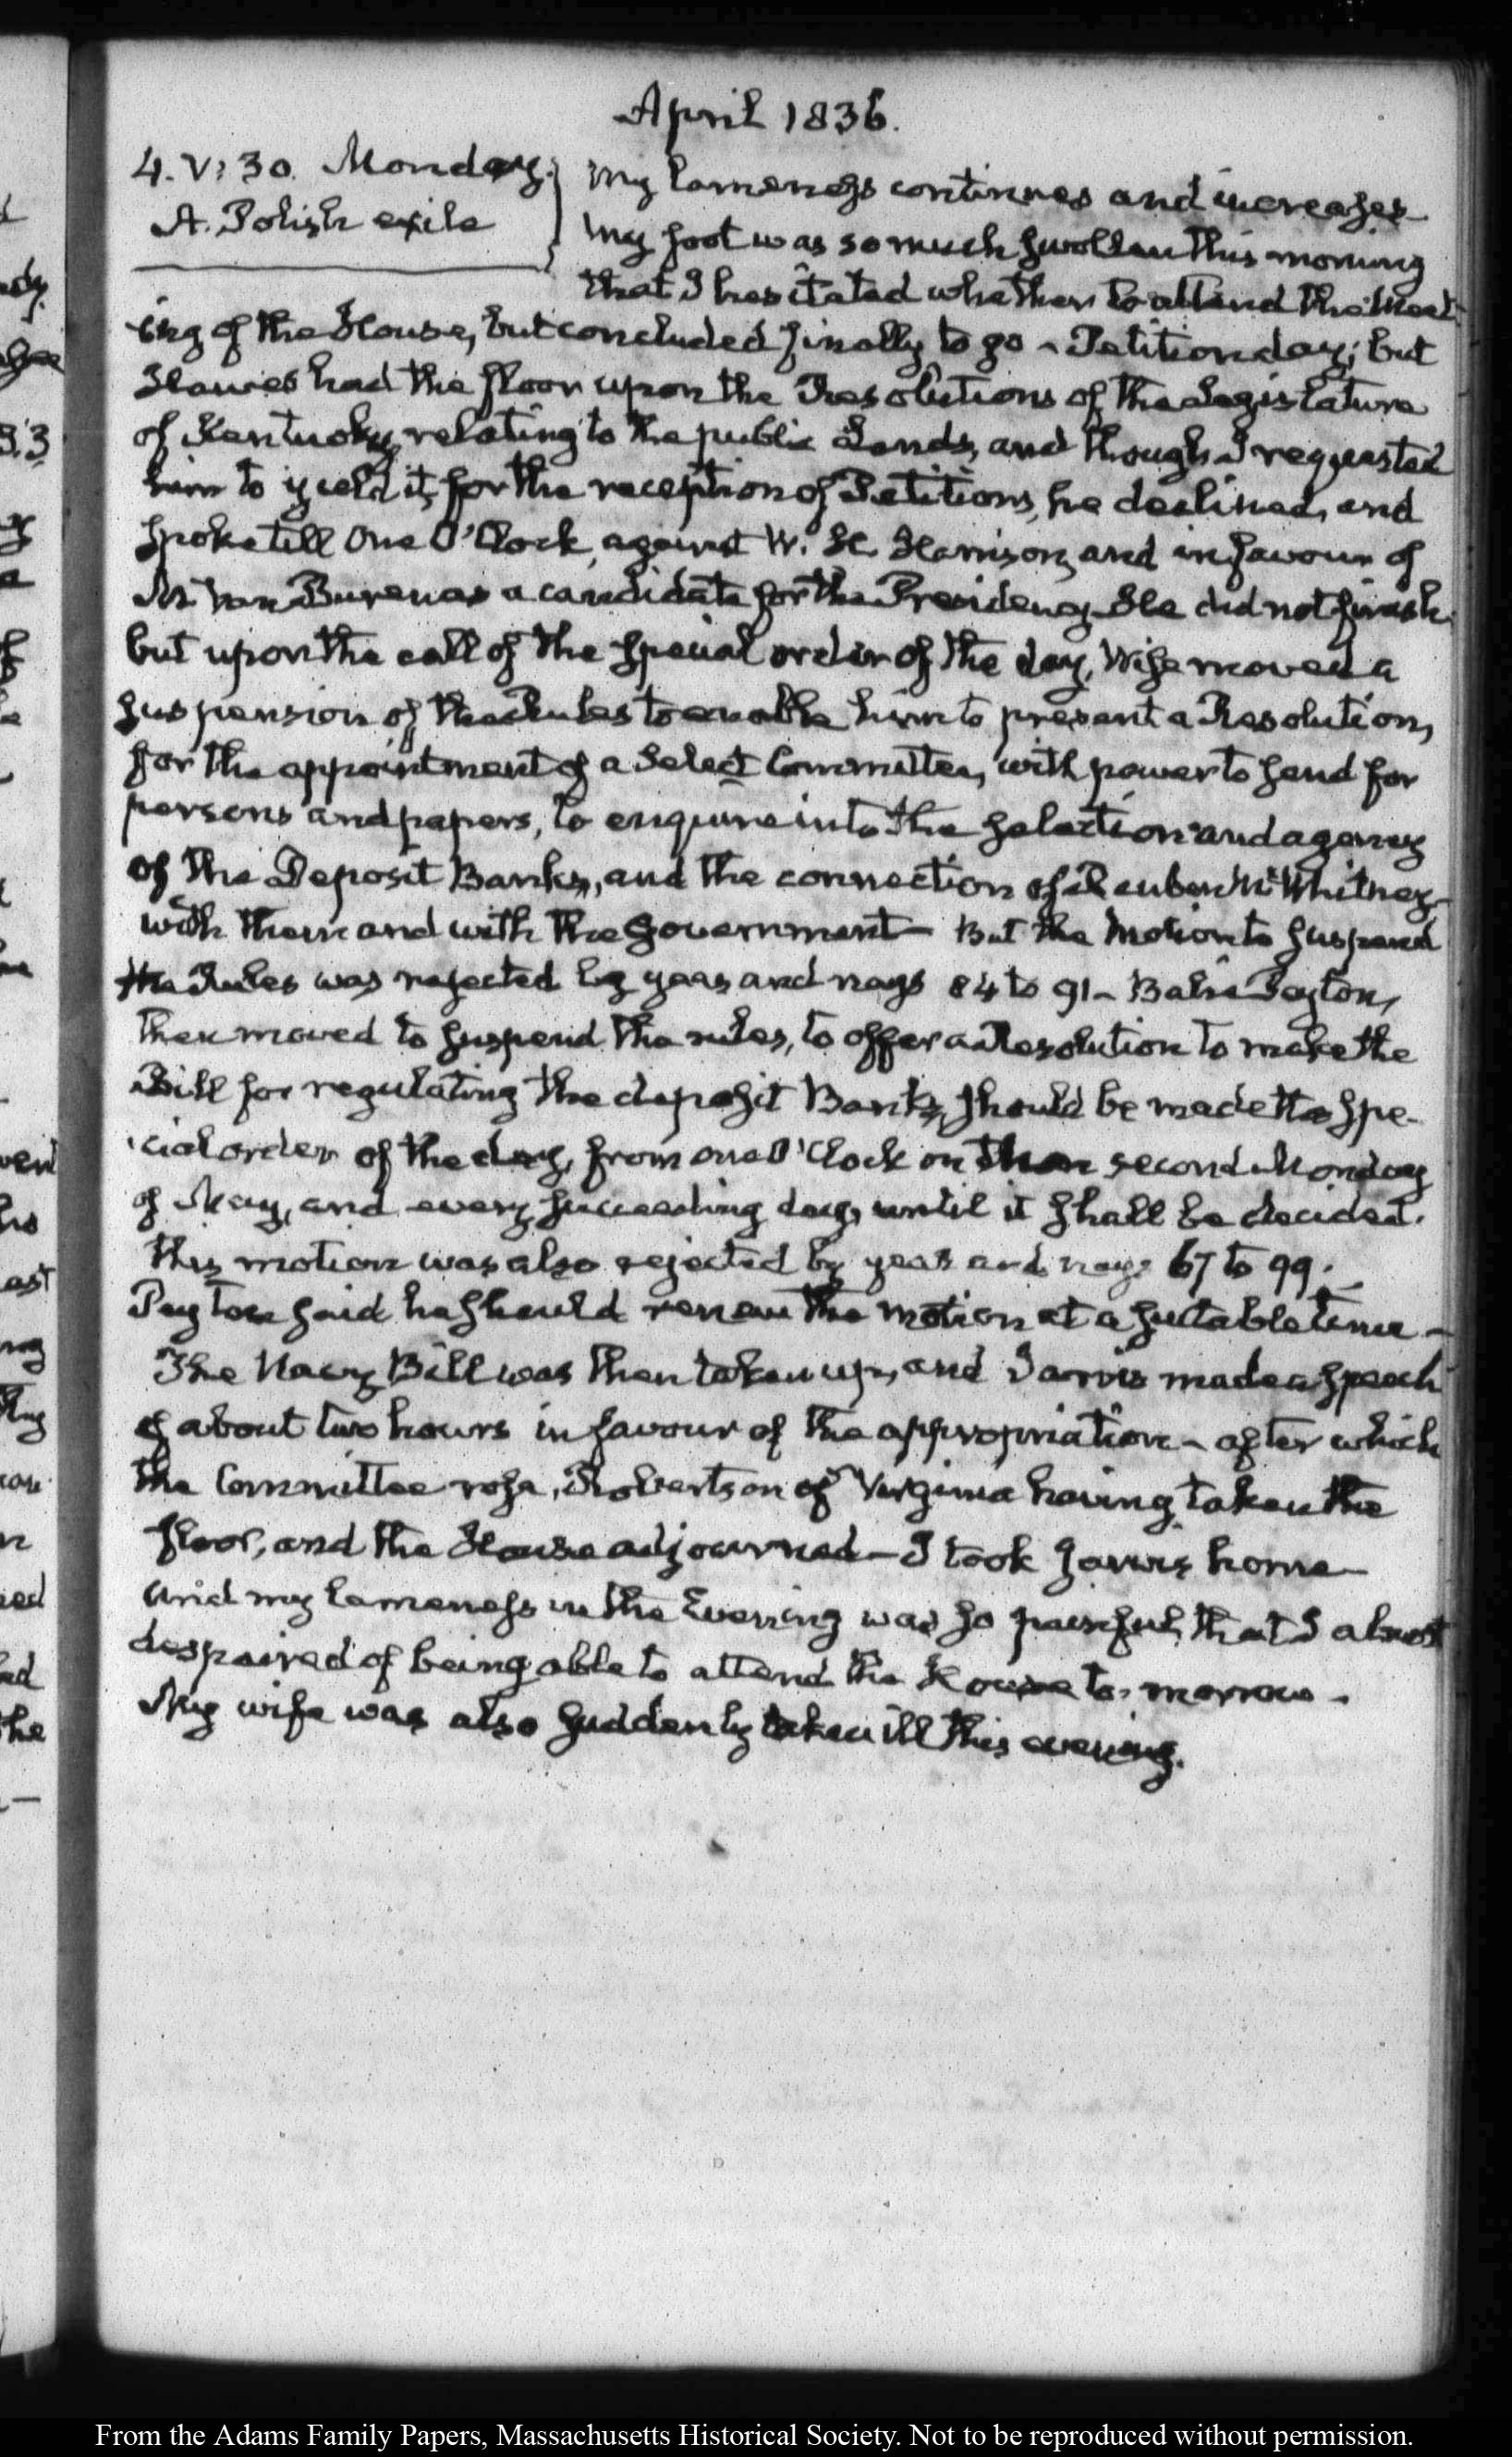 April 1836.
4. V: 30. Monday. My lameness continues and increases
A. Polish exile My foot was so much swollen this morning
that I hesitated whether to attend the meet-
ing of the House, but concluded finally to go – Petition day; but
Hawes had the floor upon the Resolutions of the Legislature
of Kentucky, relating to the public Lands, and though I requested
him to yield it, for the reception of Petitions, he declined, and
spoke till One O'Clock, against W. H. Harrison, and in favour of
M. Van Buren as a candidate for the Presidency. He did not finish
but upon the call of the special order of the day, Wise moved a
suspension of the Rules to enable him to present a Resolution,
for the appointment of a Select Committee, with power to send for
persons and papers, to enquire into the selection and agency
of the Deposit Banks, and the connection of Reuben M. Whitney
with them and with the Government – But the Motion to suspend
the Rules was rejected by yeas and nays 84 to 91 – Balie Peyton,
then moved to suspend the rules, to offer a Resolution to make the
Bill for regulating the deposit Banks, should be made the spe-
cial order of the day, from one O'Clock on the second Monday
of May, and every succeeding day, until it shall be decided.
This motion was also rejected by yeas and nays 67 to 99.
Peyton said he should renew the motion at a suitable time –
The Navy Bill was then taken up, and Jarvis made a speech
of about two hours in favour of the appropriation – after which
the Committee rose, Robertson of Virginia having taken the
floor, and the House adjourned – I took Jarvis home –
and my lameness in the Evening was so painful, that I almost
despaired of being able to attend the House to-morrow –
My wife was also suddenly taken ill this evening.
From the Adams Family Papers, Massachusetts Historical Society. Not to be reproduced without permission.